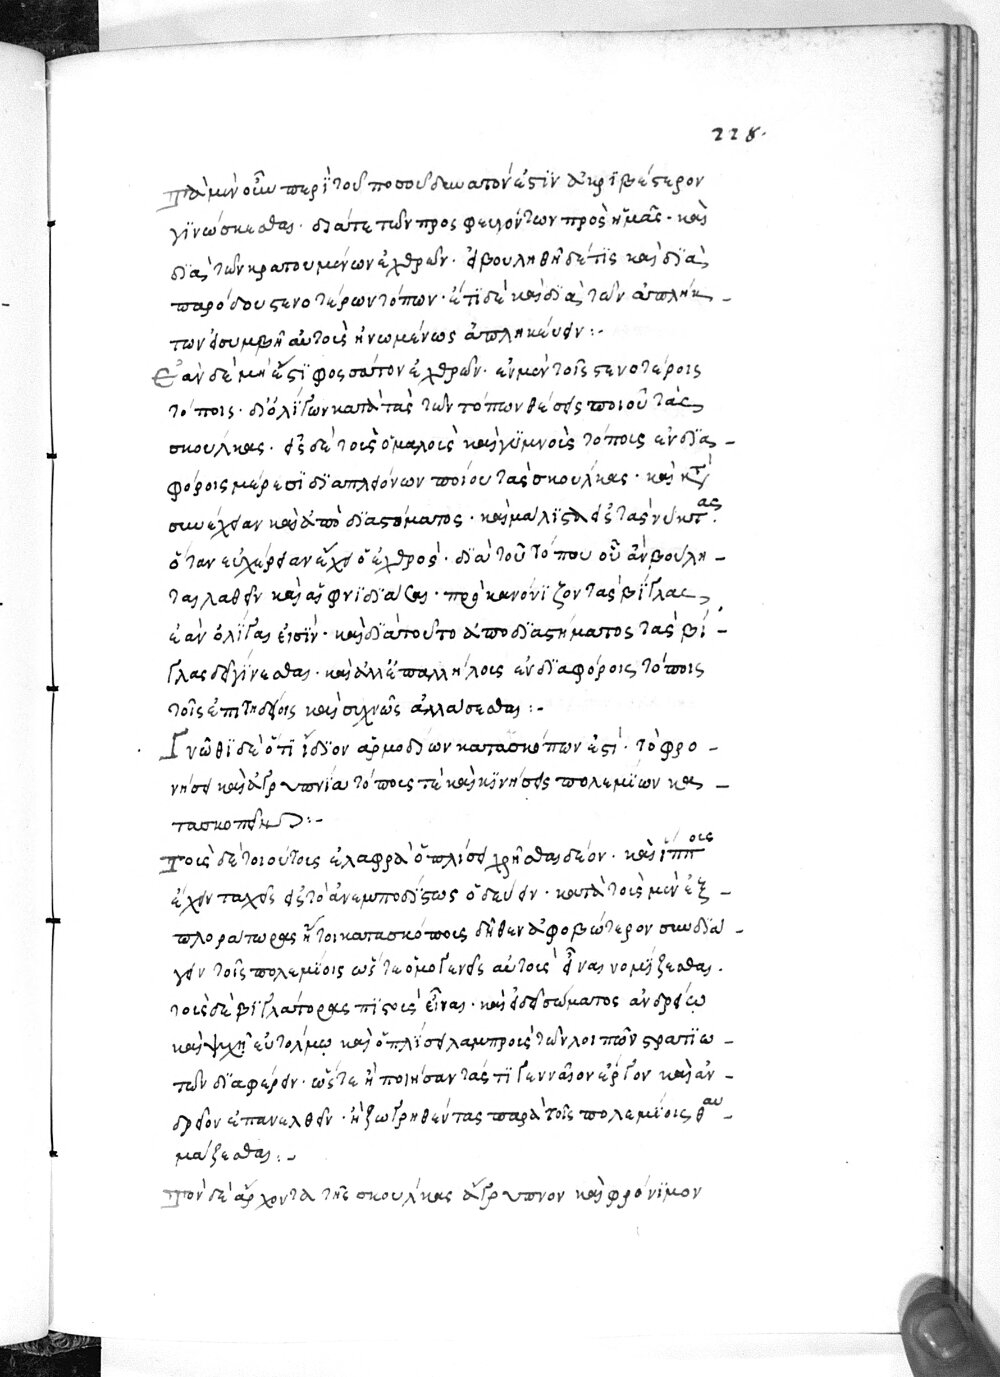 228.
Τὰ μὲν οὖν περὶ τοῦ ποσοῦ δυνατόν ἐστιν ἀκριβέστερον
γινώσκεσθαι· διά τε τῶν προσφευγόντων πρὸς ἡμᾶς· καὶ
διὰ τῶν κρατουμένων ἐχθρῶν· εἰ βουληθῆ δέ τις καὶ διὰ
παρόδου στενοτέρων τόπων· ἔτι δὲ καὶ διὰ τῶν ἀπλήκ-
των εἰ συμβῆ αὐτοῖς ἡνωμένως ἀπληκεύειν:-
Ἐὰν δὲ μὴ ἔστι φοσσάτον ἐχθρῶν· ἐν μὲν τοῖς στενοτέροις
τόποις· δι' ὀλίγων κατὰ τὰς τῶν τόπων θέσεις ποιοῦ τὰς
σκούλκας· εἰς δὲ τοῖς ὁμαλοῖς καὶ γυμνοῖς τόποις ἐν δια-
φόροις μέρεσι διὰ πλειόνων ποιοῦ τὰς σκούλκας· καὶ κατὰ
συνέχειαν καὶ ἀπὸ διαστήματος· καὶ μάλιστα εἰς τὰς νύκτας.
ὅταν εὐχέρειαν ἔχει ὁ ἐχθρός· διὰ τοῦ τόπου οὗ ἂν βούλη-
ται λαθεῖν καὶ αἰφνιδιάσαι· κανονίζον τὰς βίγλας,
ἐὰν ὀλίγαι εἰσίν· καὶ διὰ τοῦτο ἀπὸ διαστήματος τὰς βί-
γλας δεῖ γίνεσθαι· καὶ ἀλλεπαλλήλοις ἐν διαφόροις τόποις
τοῖς ἐπιτηδείοις καὶ συχνῶς ἀλλάσσεσθαι:-
Γνῶθι δὲ ὅτι ἴδιον ἁρμοδίων κατασκόπων ἐστί· τὸ φρο-
νήσει καὶ ἀγρυπνία τόποις τε καὶ κινήσεις πολεμίων κα-
τασκοπεῖν:-
Τοῖς δὲ τοιούτοις ἐλαφρᾶ ὁπλίσει χρῆσθαι δέον· καὶ ἵπποις
ἔχειν ταχεῖς εἰς τὸ ἀνεμποδίστως ὁδεύειν· κατὰ τοῖς μὲν ἐξ-
πλοράτωρας ἤτοι κατασκόποις δῆθεν ἀφοβώτερον συνδιά-
γειν τοῖς πολεμίοις ὥστε ὁμογενεῖς αὐτοῖς εἶναι νομίζεσθαι.
τοῖς δὲ βιγλάτορας πιστοῖς εἶναι· καὶ εἴδει σώματος ἀνδρείω
καὶ ψυχῆ εὐτόλμω καὶ ὁπλίσει λαμπροῖς τῶν λοιπῶν στρατιω-
τῶν διαφέρειν· ὥστε ἢ ποιήσαντάς τι γενναῖον ἔργον καὶ ἀν-
δρεῖον ἐπανελθεῖν· ἢ ζωγρηθέντας παρὰ τοῖς πολεμίοις θαυ-
μάζεσθαι:-
Τὸν δὲ ἄρχοντα τῆς σκούλκας ἄγρυπνον καὶ φρόνιμον